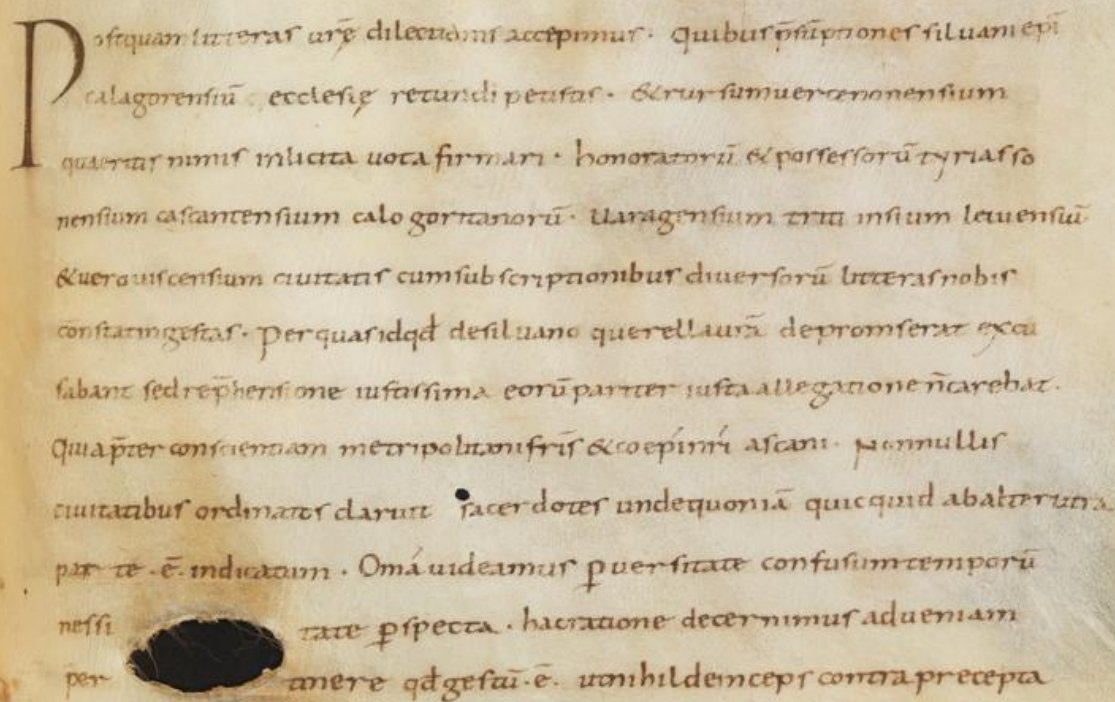 Postquam litteras urę̄ dilectionis accepimus · quibus p̄sūptiones siluani ep̄i
calagorensiū ecclesię retundi petistis · & rursum uerecnonensium
quaeritis nimis inlicita uota firmari · honoratorū & possessorū tyriasso
nensium cascantensium calogorritanorū · Uaragensium triti insium leiuensiū
& uerouiscensium ciuitatis cum subscriptionibus diuersorū litteras nobis
constat ingestas · Per quas id qđ de siluano querella urā depromserat excu
sabant sed rep̄hensione iustissima eorū pariter iusta allegatione n̄ carebat ·
Quia p̄ter conscientiam metropolitani fr̄is & coep̄i nr̄i ascani · Nonnullis
ciuitatibus ordinatos claruit sacerdotes unde quoniā quicquid ab alterutra
parte · ē · indicatum · Om̄a uideamus ꝑuersitate confusum temporū
nessi tate ꝑspecta · hac ratione decernimus ad ueniam
per tinere qđ gestū · ē · ut nihil deinceps contra precepta